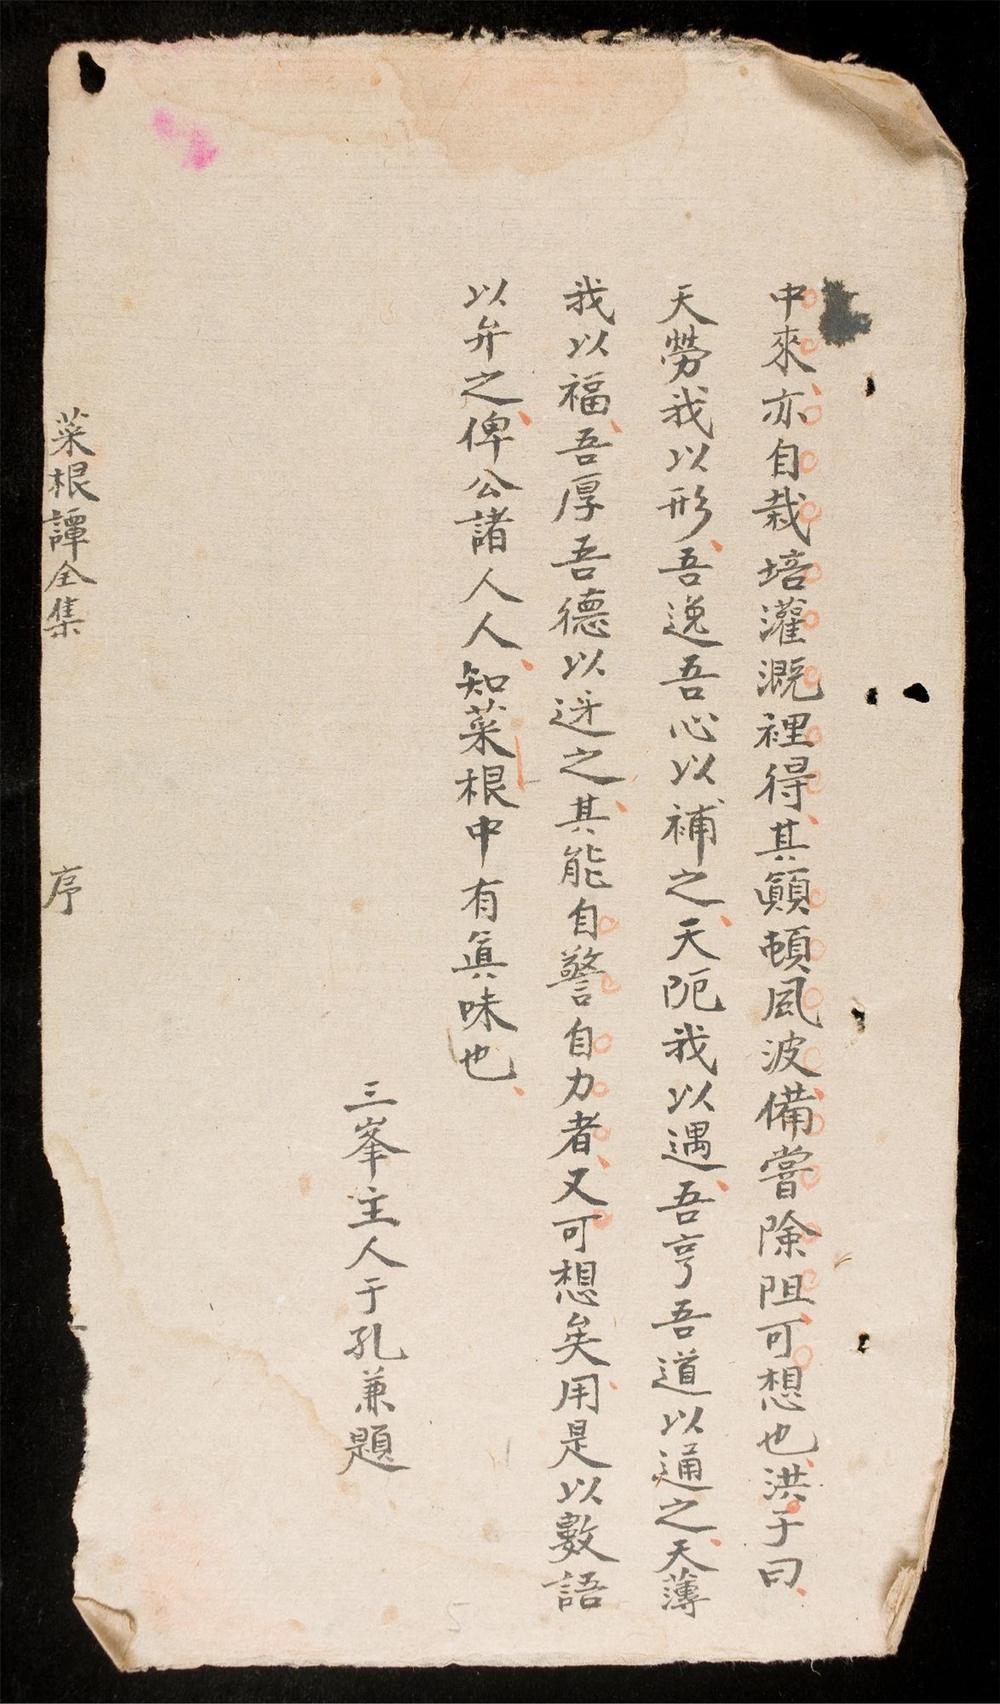 中來亦自栽培灌溉裡得其顛頓風波備嘗險阻可想也洪子曰
天勞我以形吾逸吾心以補之天阨我以遇吾亨吾道以通之天薄
我以福吾厚吾德以迓之其能自警自力者又可想矣用是以數語
以弁之俾公諸人人知菜根中有眞味也
三峯主人于孔兼題
菜根譚全集
序